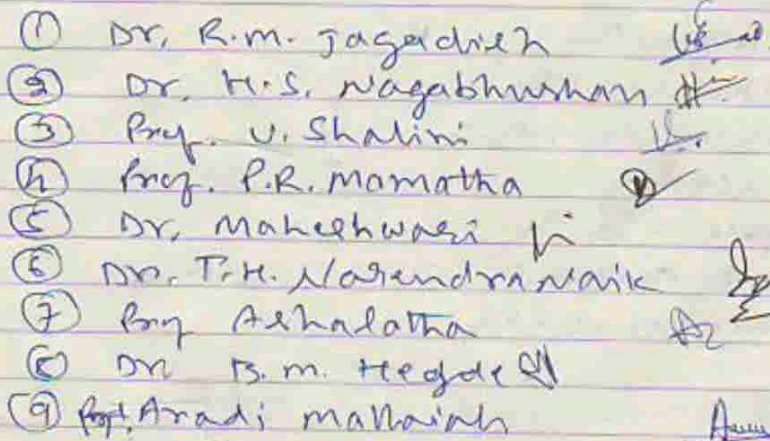 ① Dr. R.M. Jagadish
② Dr. H.S. Nagabhushan
③ Prof. U. Shalini
④ Prof. P.R. Mamatha
⑤ Dr. Maheshwari
⑥ Dr. T.H. Narendra Naik
⑦ Prof Ashalatha
⑧ Dr B.M. Hegde
⑨ Prof. Aradi Mallaiah